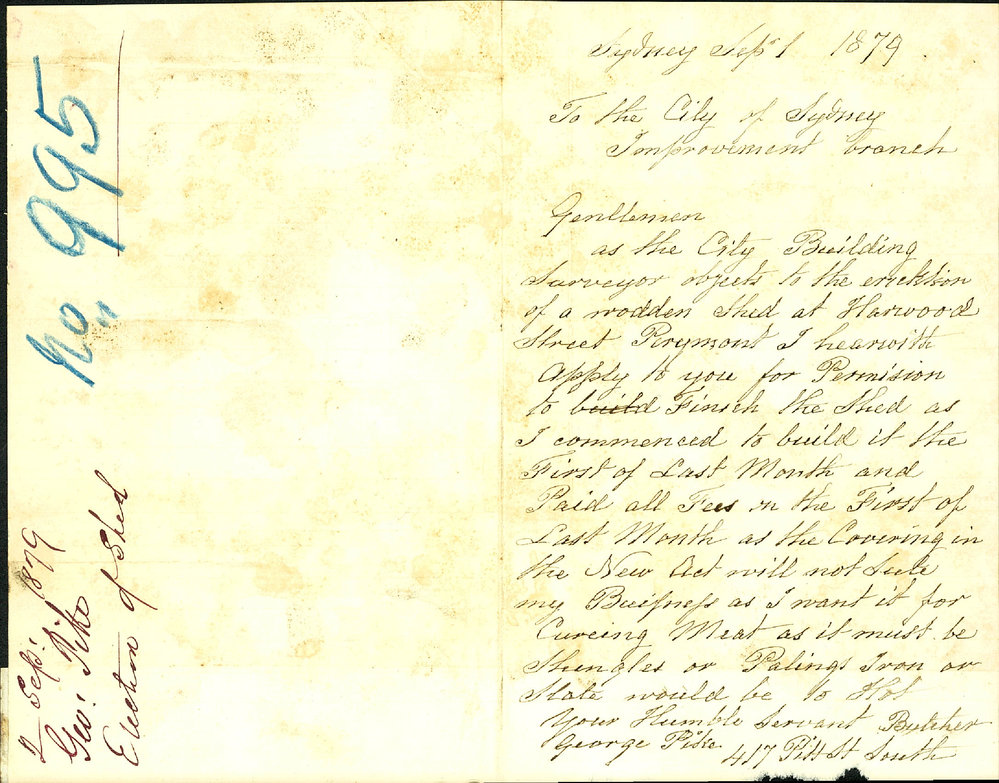 No 995
2 Sep: 1879
Geo: Pike
Erection of Shed
Sydney Sep 1 1879
To the City of Sydney
Improvement branch
Gentlemen
as the City Building
Surveyor objects to the ericktion
of a wodden Shed at Harwood
Street Perymont I hearwith
Apply to you for Permision
to build Finish the Shed as
I commenced to build it the
First of Last Month and
Paid all Fees on the First of
Last Month as the Covering in
the New Act will not Sute
my Buisness as I want it for
Cureing Meat as it must be
Shingles or Palings Iron or
Slate would be to Hot
Your Humble Servant Butcher
George Pike 417 Pitt St South